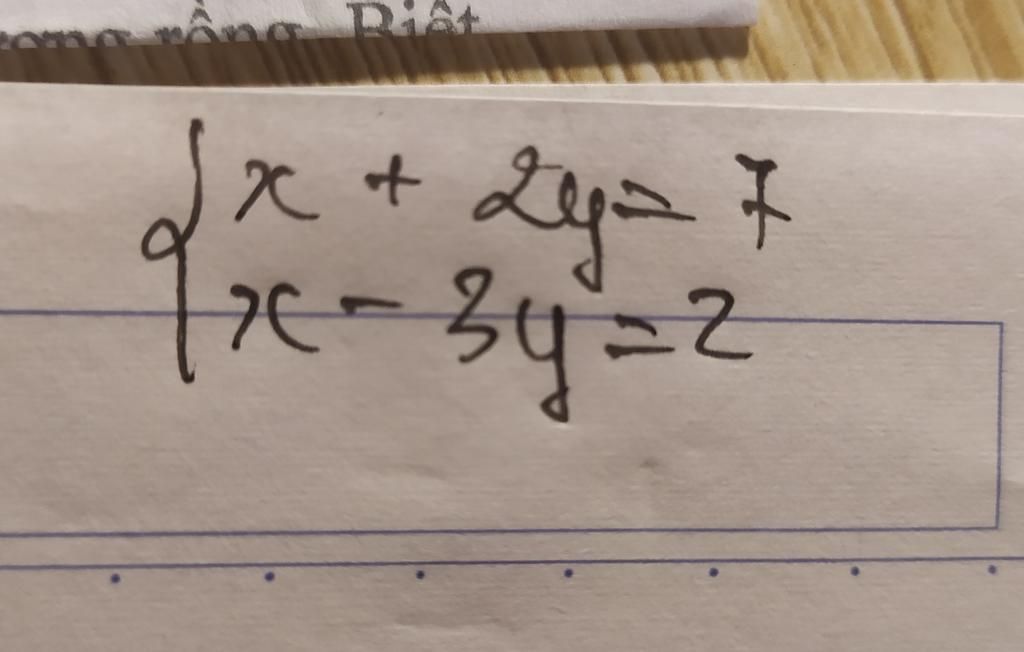 rồng Biết
x + 2y = 7
x - 3y = 2